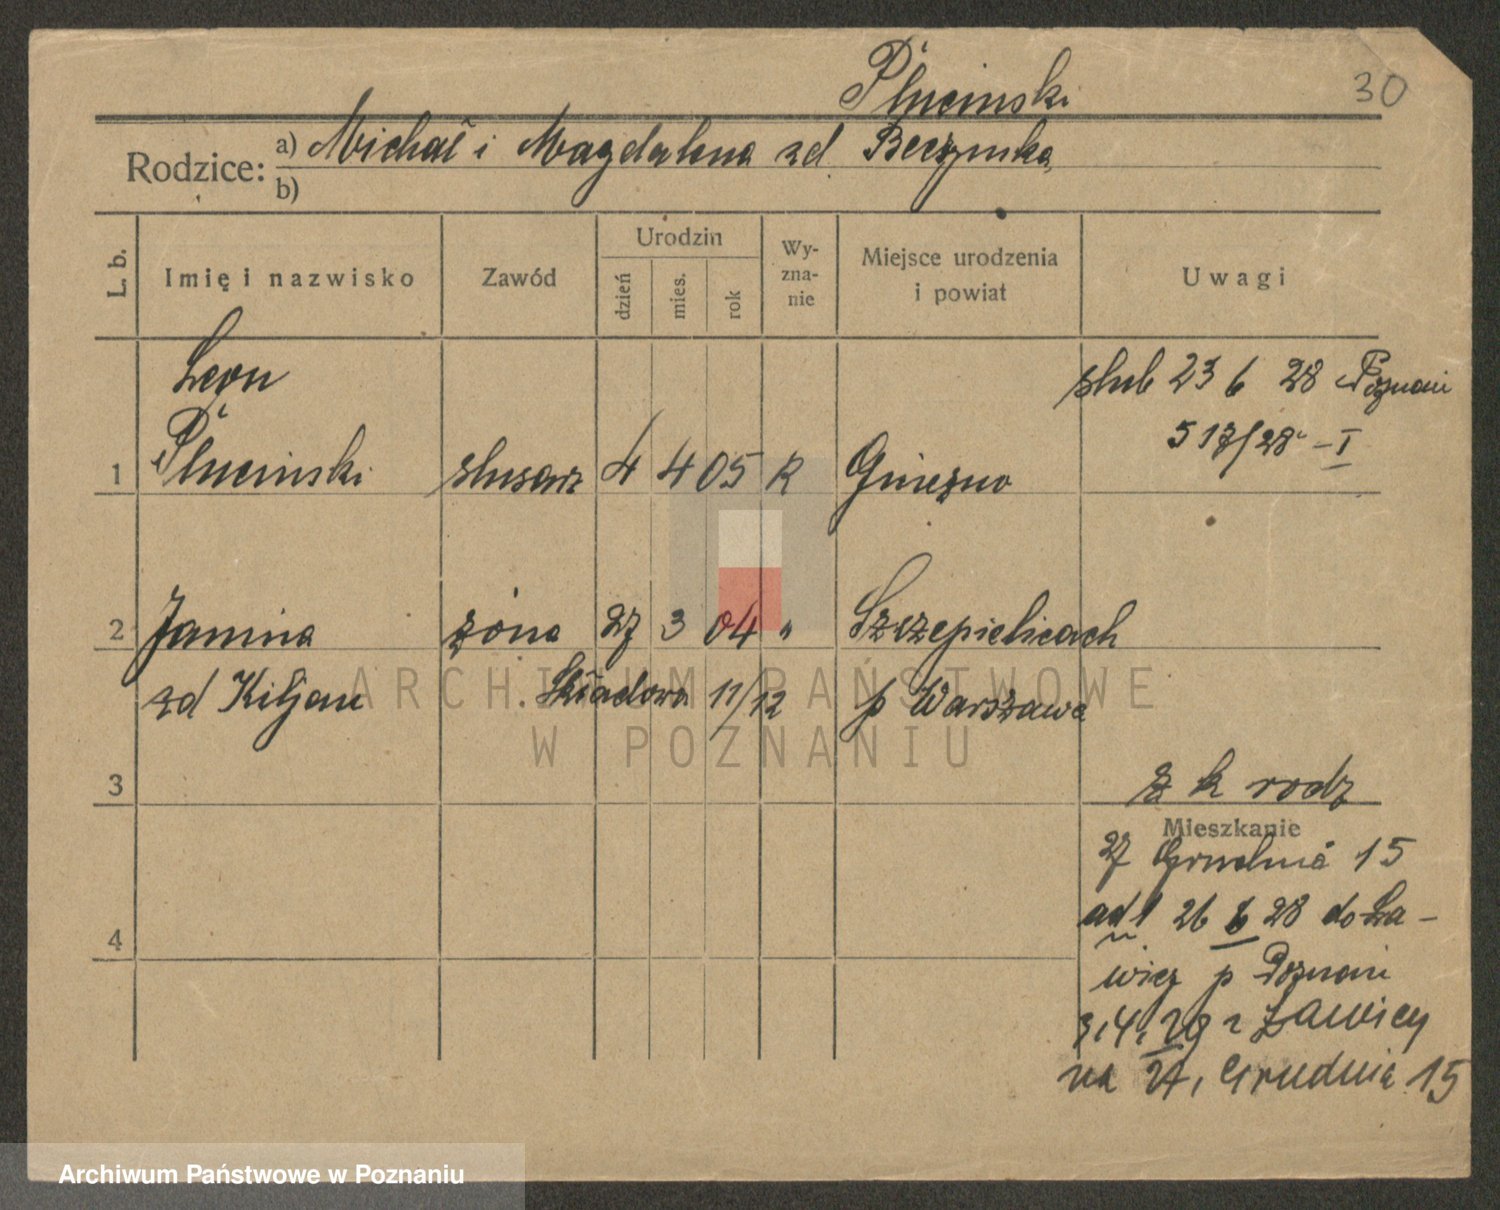 30
Plucinski
Rodzice: a) Michał i Magdalena zd
b)
L. b. Imię i nazwisko Zawód Urodzin dzień mies. rok Wy-zna-nie Miejsce urodzenia i powiat Uwagi
Leon
ślub 23 6 28 Poznań
517/28 - I
1 Plucinski slusarz 4 4 05 R Gniezno
2 Janina żona 27 3 04 " Szczepielicach
zd Kiljan Składowa 11/12 p Warszawa
3 z k rodz
Mieszkanie
27 Grudnia 15
ad 1 26 6 28 do Ła-
wicy p Poznań
4
3.4.29 z Ławicy
na 27. Grudnia 15
ARCHIWUM PAŃSTWOWE
W POZNANIU
Archiwum Państwowe w Poznaniu